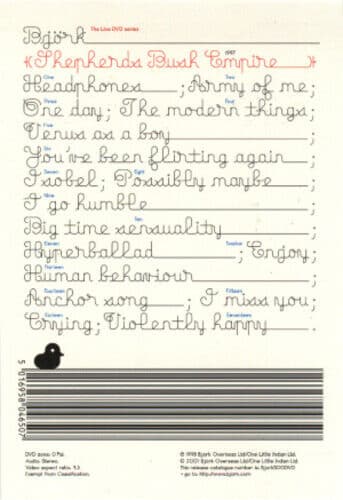 Björk The Live DVD series
1997
(Shepherds Bush Empire)
One Two
Headphones; Army of me;
Three Four
One day; The modern things;
Five
Venus as a boy;
Six
You've been flirting again;
Seven Eight
Isobel; Possibly maybe;
Nine
I go humble;
Ten
Big time sensuality;
Eleven Twelve
Hyperballad; Enjoy;
Thirteen
Human behaviour;
Fourteen Fifteen
Anchor song; I miss you;
Sixteen Seventeen
Crying; Violently happy.
5 016958 046507
DVD zone: 0 Pal.
Audio: Stereo.
Video aspect ratio: 4:3.
Exempt from Classification.
© 1998 Bjork Overseas Ltd/One Little Indian Ltd.
℗ 2001 Bjork Overseas Ltd/One Little Indian Ltd.
This release catalogue number is
go to: http://www.bjork.com